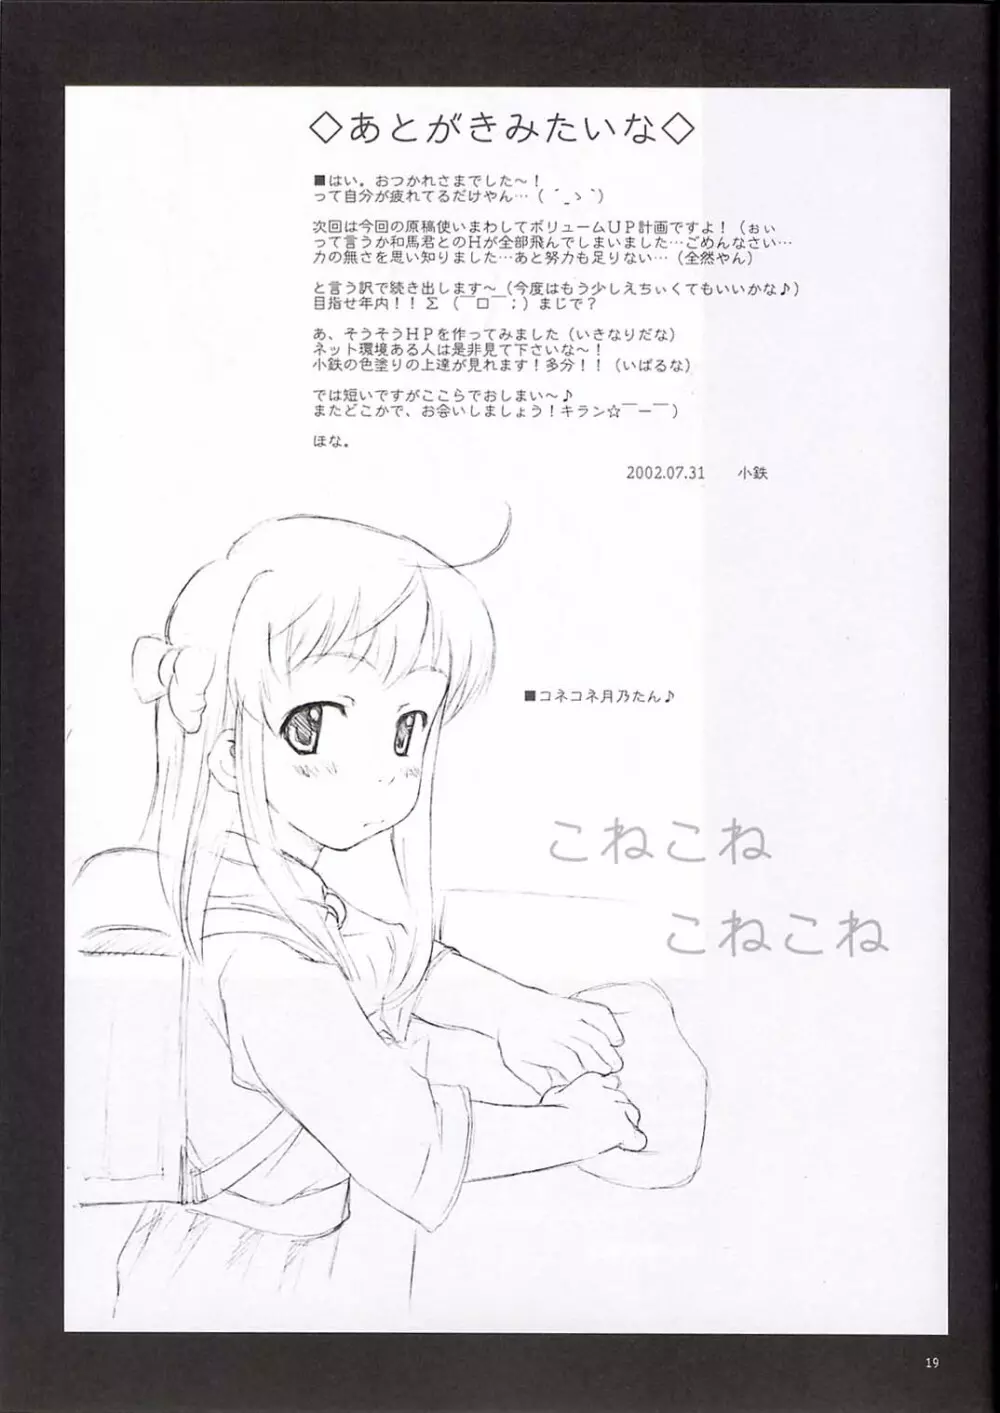 ◇あとがきみたいな◇
■はい。おつかれさまでした～！
って自分が疲れてるだけやん…（ ´_ゝ`）
次回は今回の原稿使いまわしてボリュームＵＰ計画ですよ！（ぉぃ
って言うか和馬君とのＨが全部飛んでしまいました…ごめんなさい…
力の無さを思い知りました…あと努力も足りない…（全然やん）
と言う訳で続き出します～（今度はもう少しえちぃくてもいいかな♪）
目指せ年内！！Σ（￣ロ￣；）まじで？
あ、そうそうＨＰを作ってみました（いきなりだな）
ネット環境ある人は是非見て下さいな～！
小鉄の色塗りの上達が見れます！多分！！（いばるな）
では短いですがここらでおしまい～♪
またどこかで、お会いしましょう！キラン☆￣ー￣）
ほな。
2002.07.31 小鉄
■コネコネ月乃たん♪
こねこね
こねこね
19